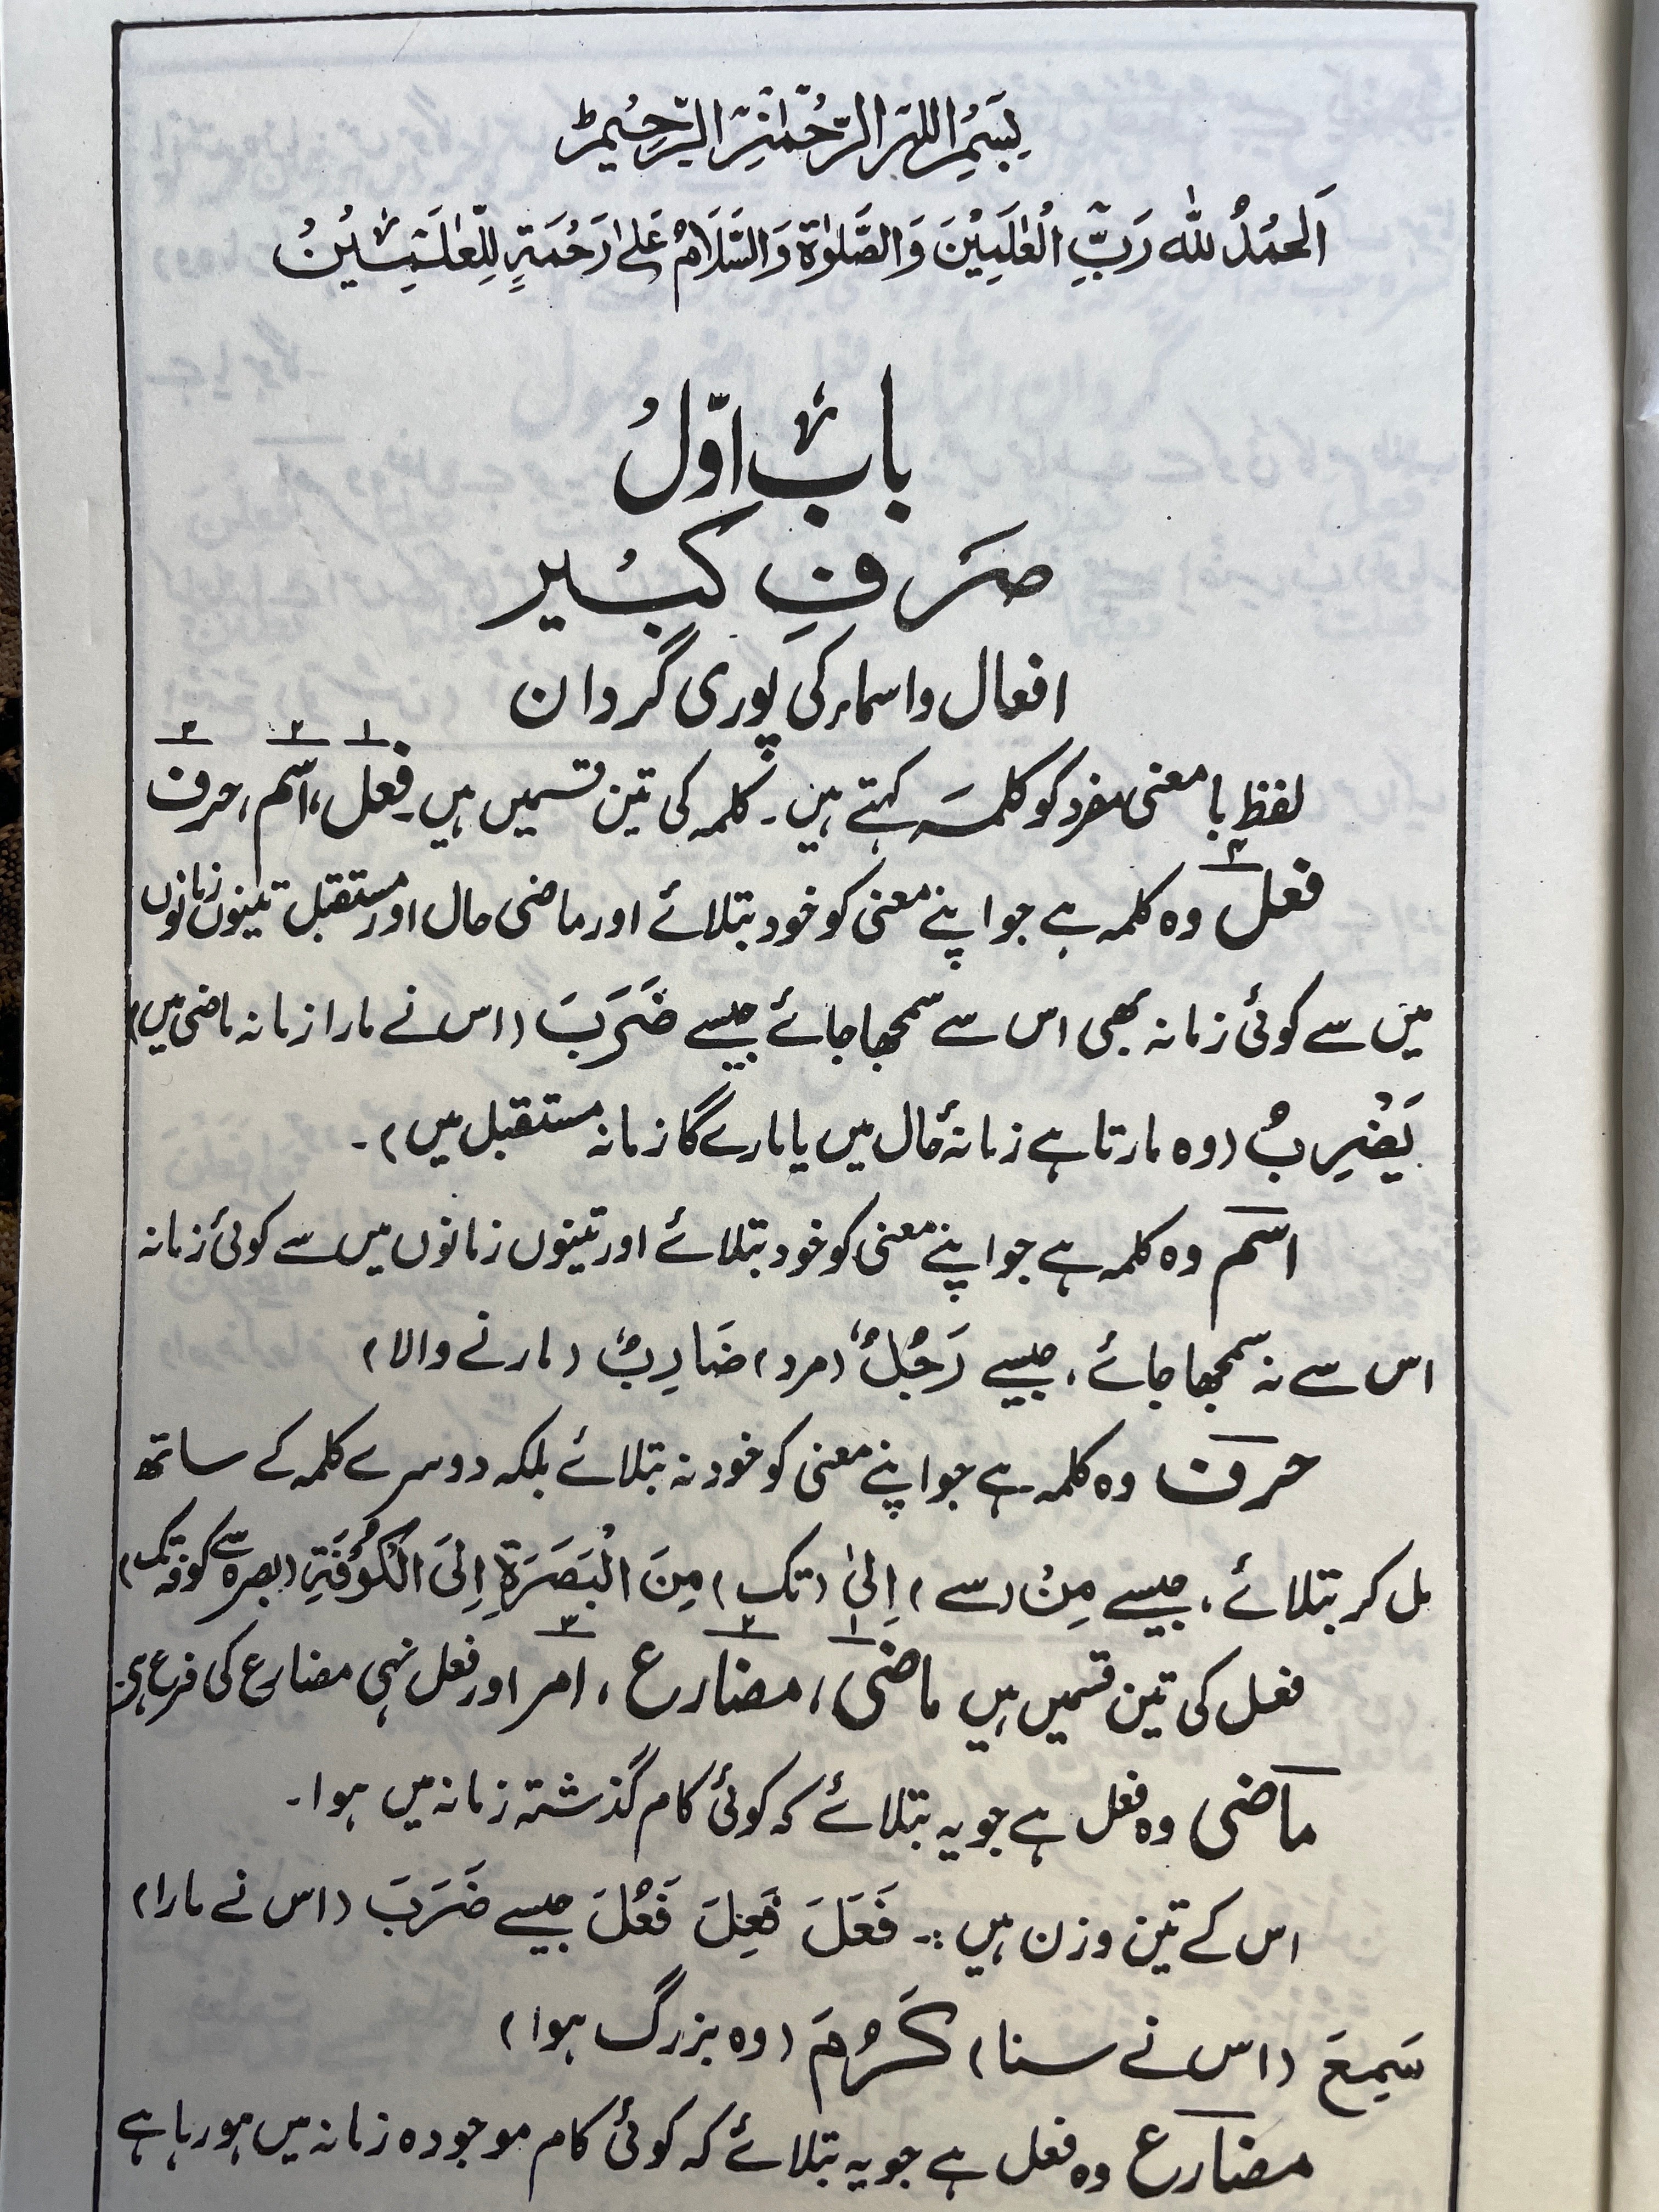 بِسْمِ اللهِ الرَّحْمٰنِ الرَّحِيْمِ
اَلْحَمْدُ لِلّٰهِ رَبِّ الْعٰلَمِيْنَ وَالصَّلٰوةُ وَالسَّلَامُ عَلٰى رَحْمَةٍ لِّلْعٰلَمِيْنَ
بابُ اوّلُ
صَرفِ کبیر
افعال واسماء کی پوری گردان
۱ ۲ ۳
لفظ بامعنی مفرد کو کلمہ کہتے ہیں۔ کلمہ کی تین قسمیں ہیں۔ فعل، اسم، حرف
فعل وہ کلمہ ہے جو اپنے معنی کو خود بتلائے اور ماضی حال اور مستقبل تینوں زمانوں
میں سے کوئی زمانہ بھی اس سے سمجھا جائے جیسے ضَرَبَ (اس نے مارا زمانہ ماضی میں)
یَضْرِبُ (وہ مارتا ہے زمانۂ حال میں یا مارے گا زمانہ مستقبل میں)۔
اسم وہ کلمہ ہے جو اپنے معنی کو خود بتلائے اور تینوں زمانوں میں سے کوئی زمانہ
اس سے نہ سمجھا جائے، جیسے رَجُلٌ (مرد) ضَارِبٌ (مارنے والا)
حرف وہ کلمہ ہے جو اپنے معنی کو خود نہ بتلائے بلکہ دوسرے کلمہ کے ساتھ
مل کر بتلائے، جیسے مِنْ (سے) اِلٰی (تک) مِنَ الْبَصَرَةِ اِلَی الْکُوْفَةِ (بصرہ سے کوفہ تک)
۱ ۲ ۳
فعل کی تین قسمیں ہیں ماضی، مضارع، امر اور فعل نہی مضارع کی فرع ہے۔
ماضی وہ فعل ہے جو یہ بتلائے کہ کوئی کام گذشتہ زمانہ میں ہوا۔
اس کے تین وزن ہیں :۔ فَعَلَ فَعِلَ فَعُلَ جیسے ضَرَبَ (اس نے مارا)
سَمِعَ (اس نے سنا) کَرُمَ (وہ بزرگ ہوا)
مضارع وہ فعل ہے جو یہ بتلائے کہ کوئی کام موجودہ زمانہ میں ہو رہا ہے